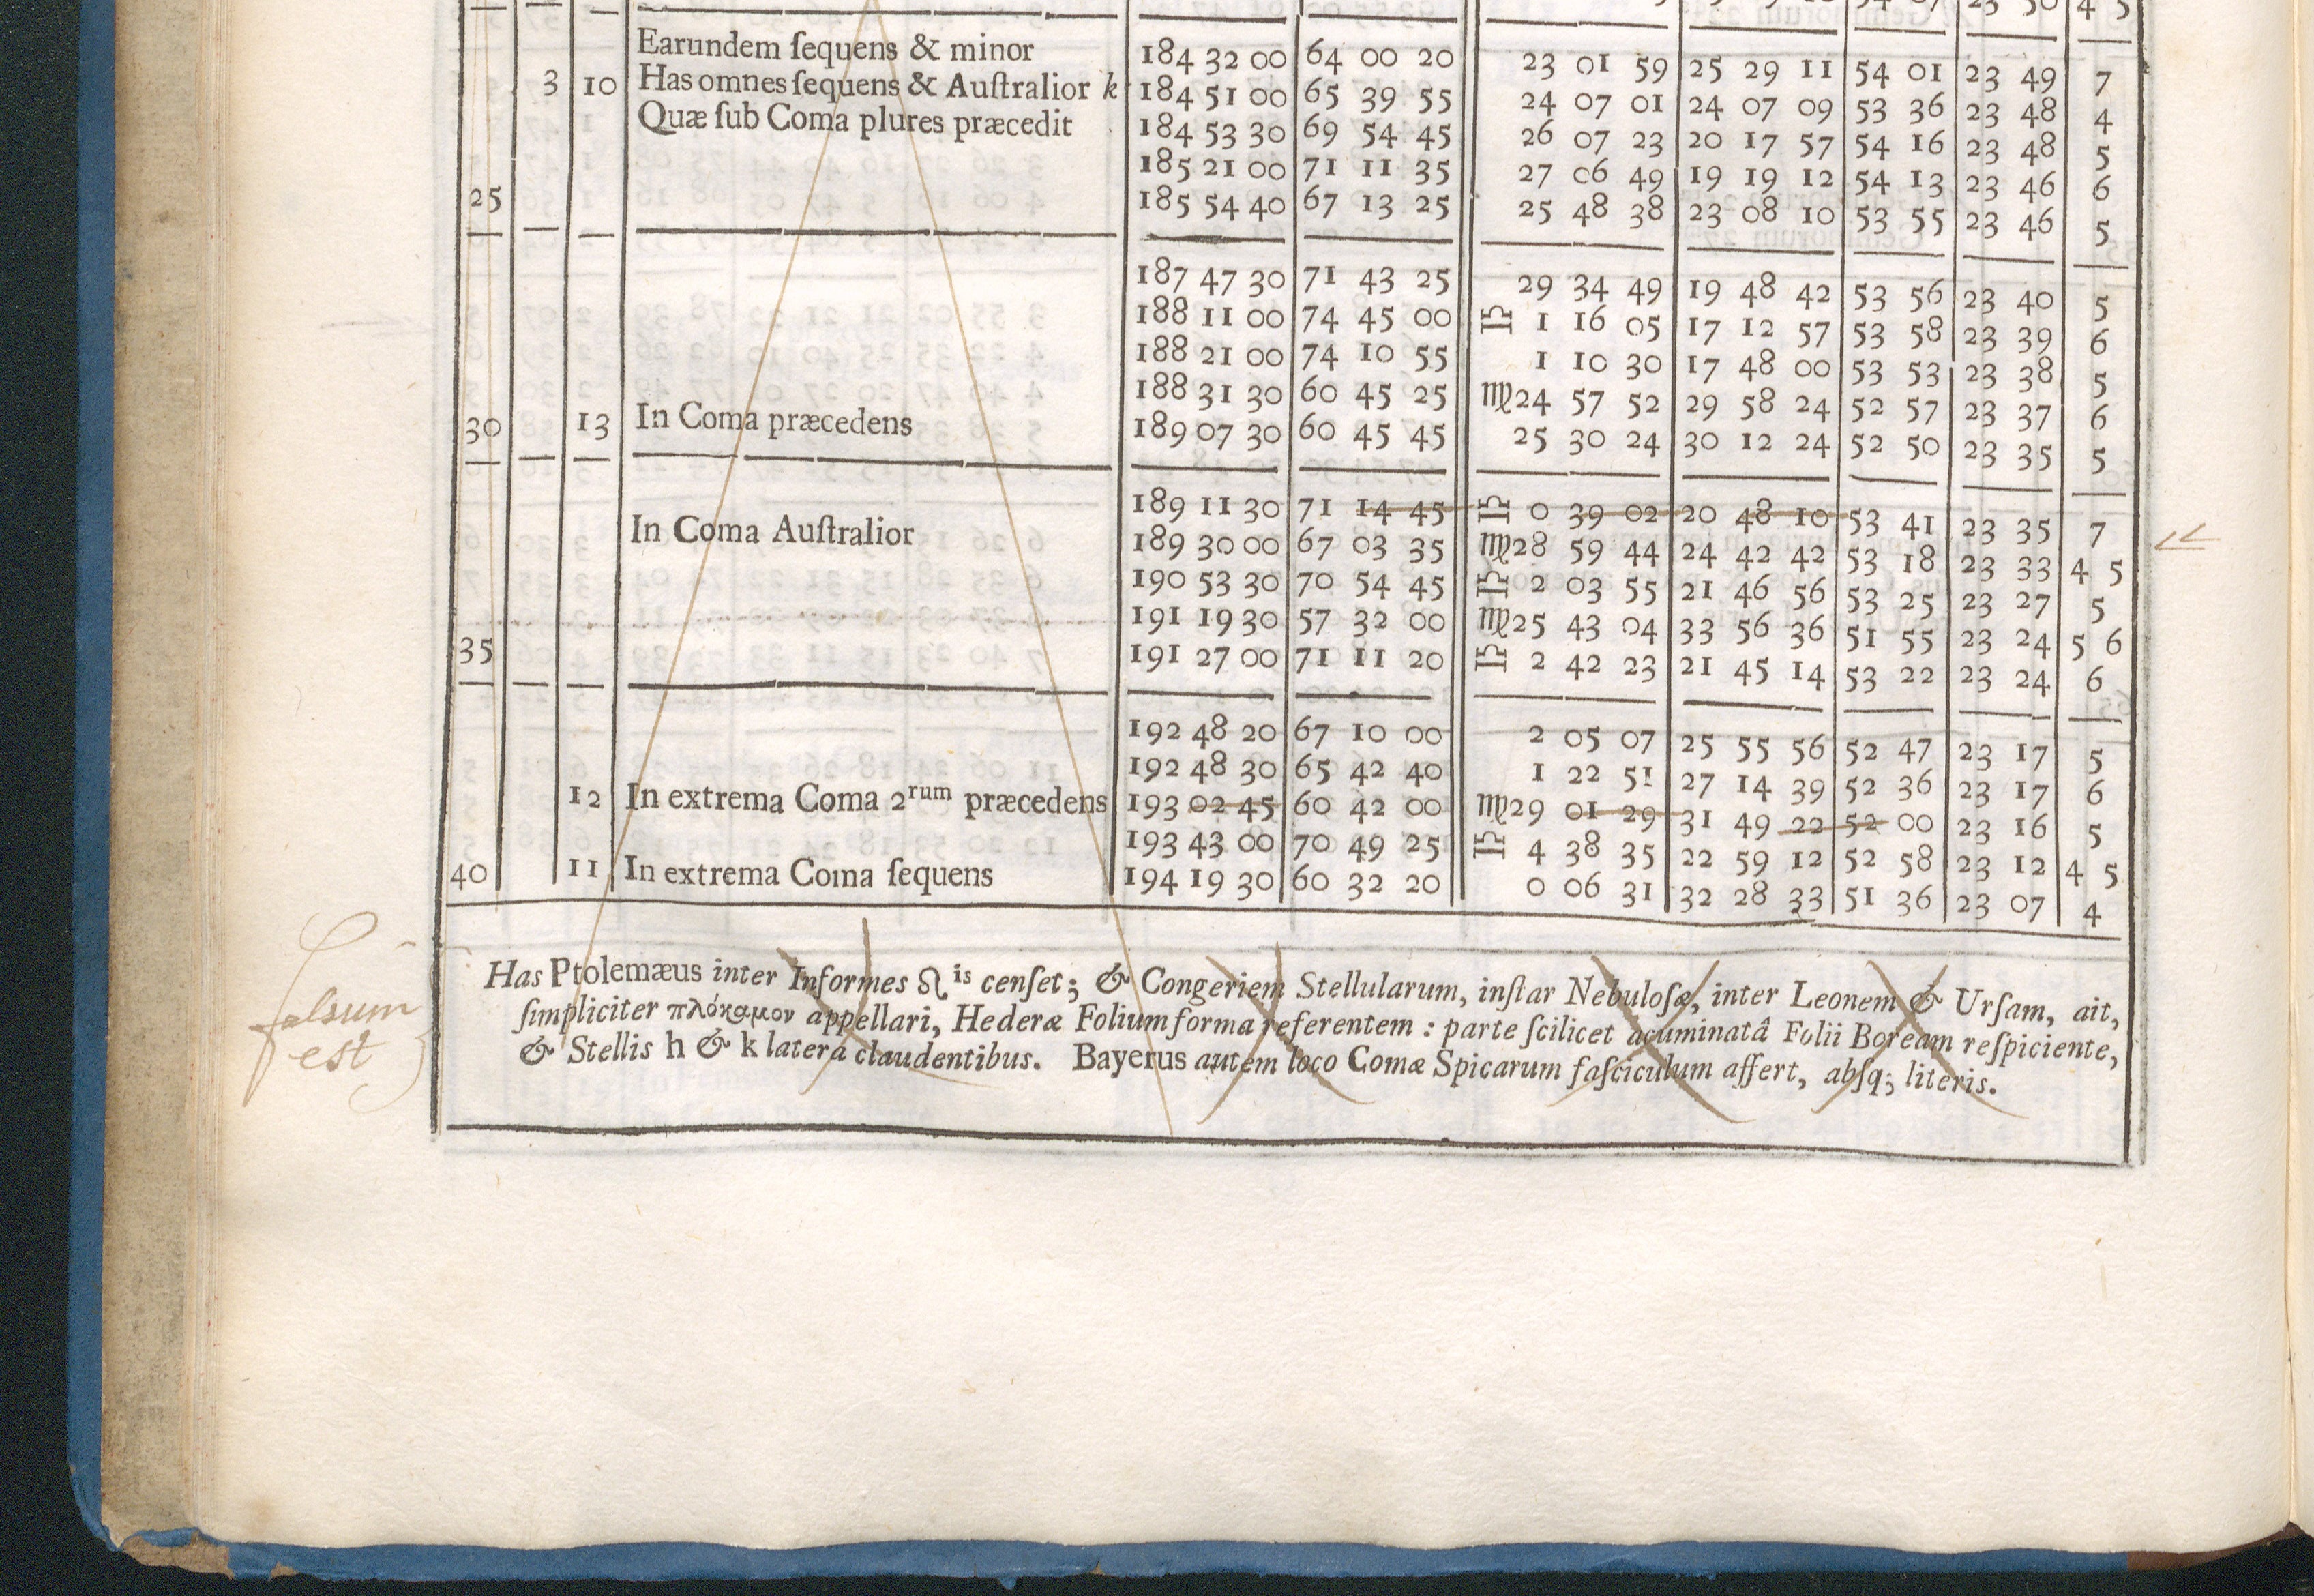 23 50 4 5
Earundem ſequens & minor 184 32 00 64 00 20 23 01 59 25 29 11 54 01 23 49 7
3 10 Has omnes ſequens & Auſtralior k 184 51 00 65 39 55 24 07 01 24 07 09 53 36 23 48 4
Quæ ſub Coma plures præcedit 184 53 30 69 54 45 26 07 23 20 17 57 54 16 23 48 5
185 21 00 71 11 35 27 06 49 19 19 12 54 13 23 46 6
25 185 54 40 67 13 25 25 48 38 23 08 10 53 55 23 46 5
187 47 30 71 43 25 29 34 49 19 48 42 53 56 23 40 5
188 11 00 74 45 00 ♎ 1 16 05 17 12 57 53 58 23 39 6
188 21 00 74 10 55 1 10 30 17 48 00 53 53 23 38 5
188 31 30 60 45 25 ♍ 24 57 52 29 58 24 52 57 23 37 6
30 13 In Coma præcedens 189 07 30 60 45 45 25 30 24 30 12 24 52 50 23 35 5
189 11 30 71 14 45 ♎ 0 39 02 20 48 10 53 41 23 35 7
In Coma Auſtralior 189 30 00 67 03 35 ♍ 28 59 44 24 42 42 53 18 23 33 4 5
190 53 30 70 54 45 ♎ 2 03 55 21 46 56 53 25 23 27 5
191 19 30 57 32 00 ♍ 25 43 04 33 56 36 51 55 23 24 5 6
35 191 27 00 71 11 20 ♎ 2 42 23 21 45 14 53 22 23 24 6
192 48 20 67 10 00 2 05 07 25 55 56 52 47 23 17 5
192 48 30 65 42 40 1 22 51 27 14 39 52 36 23 17 6
12 In extrema Coma 2rum præcedens 193 02 45 60 42 00 ♍ 29 01 29 31 49 22 52 00 23 16 5
193 43 00 70 49 25 ♎ 4 38 35 22 59 12 52 58 23 12 4 5
40 11 In extrema Coma ſequens 194 19 30 60 32 20 0 06 31 32 28 33 51 36 23 07 4
Has Ptolemæus inter Informes ♌is cenſet; & Congeriem Stellularum, inſtar Nebuloſæ, inter Leonem & Urſam, ait,
ſimpliciter πλόκαμον appellari, Hederæ Folium forma referentem : parte ſcilicet acuminatâ Folii Boream reſpiciente,
& Stellis h & k latera claudentibus. Bayerus autem loco Comæ Spicarum faſciculum affert, abſq; literis.
falsum
est